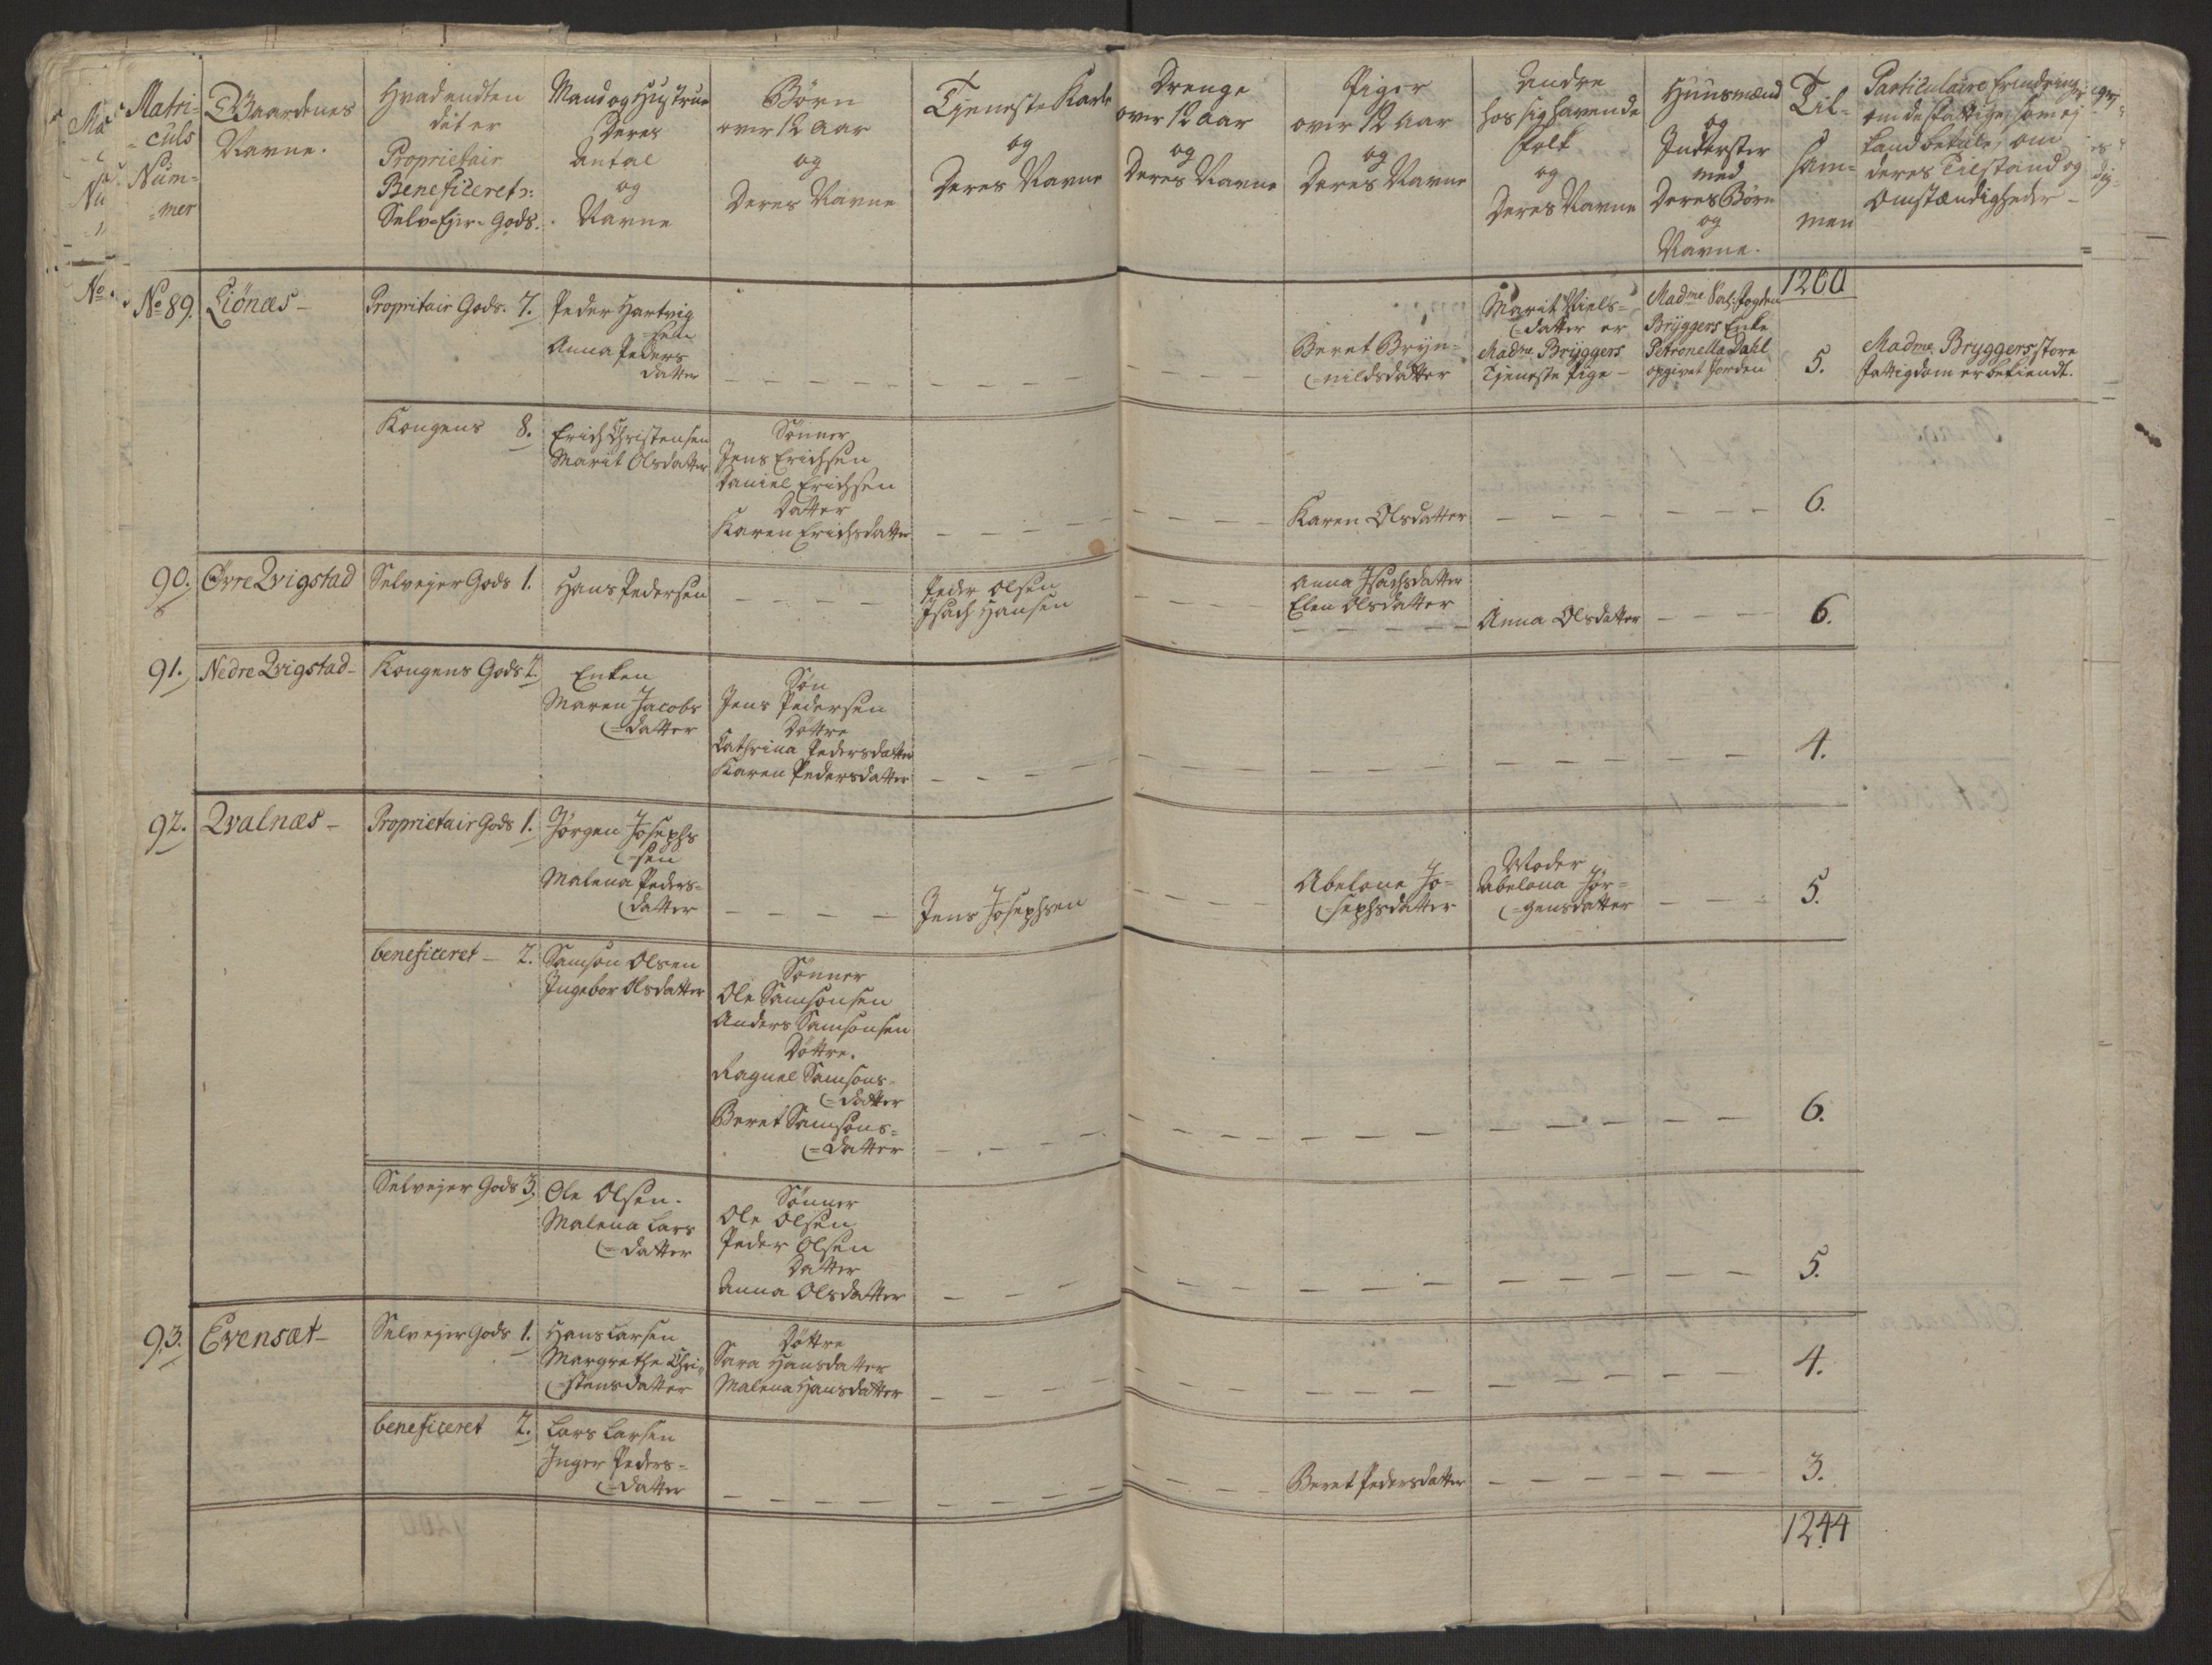 Matri-
=culs
Num-
=mer
Gaardenes
Navne.
Hvad endten
det er
Proprietair
Beneficeret
Selv-Ejer-Gods.
Mand og Hustrue
Deres
Antal
og
Navne
Børn
over 12 Aar
og
Deres Navne
Tjeneste Karle
og
Deres Navne
Drenge
over 12 Aar
og
Deres Navne
Piger
over 12 Aar
og
Deres Navne
Andre
hos sig havende
Folk
og
Deres Navne
Huusmænd
og
Inderster
med
Deres Børn
og
Navne.
Til-
sam-
men
Particulaire Erindring
om de fattige, som ej
kand betale, om
deres Tilstand og
Omstændigheder-
1200
No 89. Liönæs-
Propritair Gods. 7.
Peder Hartvig
=sen
Anna Peders
datter
Beret Bryn=
=nildsdatter
Marit Niels=
=datter er
Madme Bryggers
Tjeneste Pige-
Madme Sal: Fogden
Bryggers Enke
Petronella Dahl
opgivet Jorden
5.
Madme Bryggers store
Fattigdom er bekiendt.
Kongens 8.
Erich Christensen
Marit Olsdatter
Sønner
Jens Erichsen
Daniel Erichsen
Datter
Karen Erichsdatter
Karen Olsdatter
6.
90. Øvre Qvigstad
Selvejer Gods 1.
Hans Pedersen
Peder Olsen
Isach Hansen
Anna Isachsdatter
Elen Olsdatter
Anna Olsdatter
6.
91. Nedre Qvigstad-
Kongens Gods 2.
Enken
Maren Jacobs
=datter
Søn
Jens Pedersen
Døttre
Cathrina Pedersdatter
Karen Pedersdatter
4.
92. Qvalnæs-
Proprietair Gods 1.
Jørgen Josephs
=sen
Malena Peders=
datter
Jens Josephsen
Abelone Jo-
=sephsdatter
Moder
Abelona Jør=
=gensdatter
5.
beneficeret - 2.
Samson Olsen
Ingebor Olsdatter
Sønner
Ole Samsonsen
Anders Samsonsen
Døttre.
Ragnel Samsons-
=datter
Beret Samsons=
=datter
6.
Selvejer Gods 3.
Ole Olsen.
Malena Lars
=datter
Sønner
Ole Olsen
Peder Olsen
Datter
Anna Olsdatter
5.
93. Evensæt-
Selvejer Gods 1.
Hans Larsen
Margrethe Chri-
=stensdatter
Døttre
Sara Hansdatter
Malena Hansdatter
4.
beneficeret 2.
Lars Larsen
Inger Peders=
=datter
Beret Pedersdatter
3.
1244